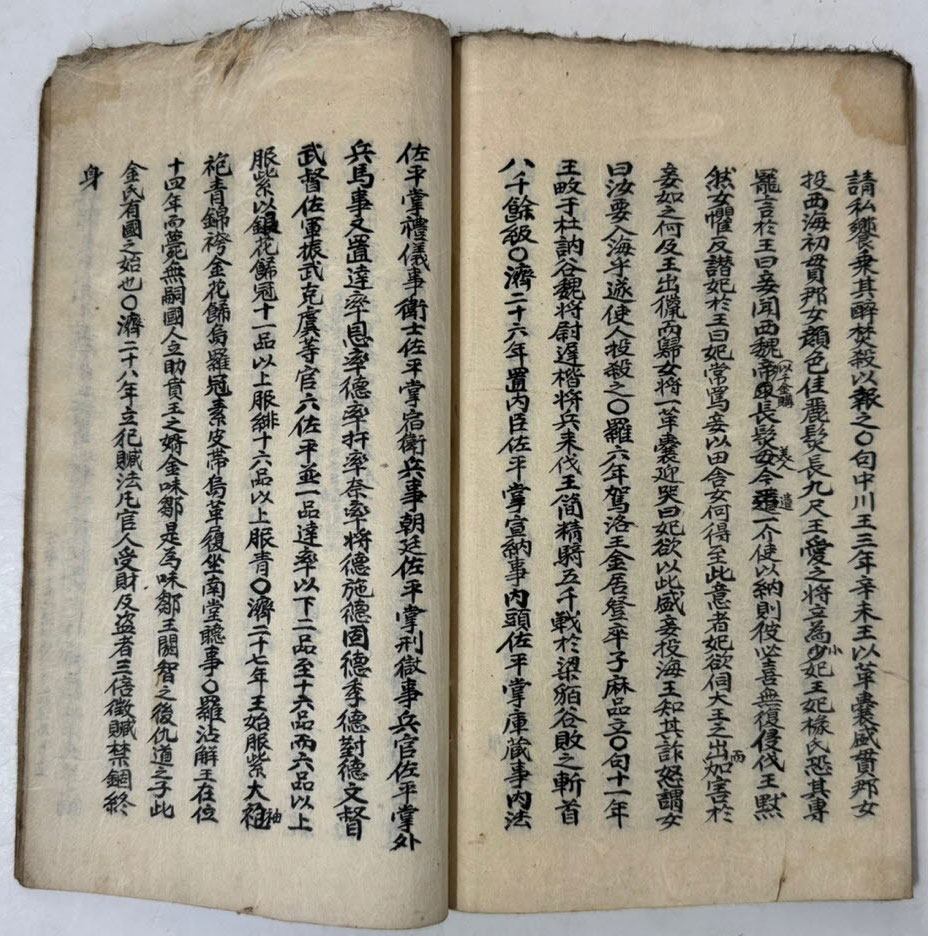 請私饗乘其醉焚殺以報之〇句中川王三年辛未王以革囊盛貫那女
投西海初貫那女顔色佳麗髮長九尺王愛之將立爲少小妃王妃椽氏恐其專
寵言於王曰妾聞西魏帝以千金購長髮每美人今遣一介使以納則彼必喜無復侵伐王默
然女懼反譖妃於王曰妃常罵妾以田舍女何得至此意者妃欲伺大王之出而加害於
妾如之何及王出獵而歸女將一革囊迎哭曰妃欲以此盛妾投海王知其詐怒謂女
曰汝要入海乎遂使人投殺之〇羅六年駕洛王金居登卒子麻品立〇句十一年
王畋于杜訥谷魏將尉遲楷將兵來伐王簡精騎五千戰於梁貊谷敗之斬首
八千餘級〇濟二十六年置內臣佐平掌宣納事內頭佐平掌庫藏事內法
佐平掌禮儀事衛士佐平掌宿衛兵事朝廷佐平掌刑獄事兵官佐平掌外
兵馬事又置達率恩率德率扞率奈率將德施德固德季德對德文督
武督佐軍振武克虞等官六佐平並一品達率以下二品至十六品而六品以上
服紫以銀花飾冠十一品以上服緋十六品以上服青〇濟二十七年王始服紫大袖
袍青錦袴金花飾烏羅冠素皮帶烏革履坐南堂聽事〇羅沾解王在位
十四年而薨無嗣國人立助賁王之婿金味鄒是爲味鄒王閼智之後仇道之子此
金氏有國之始也〇濟二十八年立犯贓法凡官人受財及盜者三倍徵贓禁錮終
身